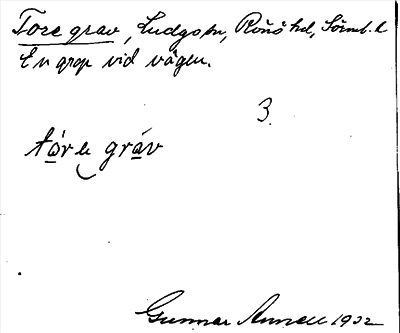 Tore grav, Ludgo sn, Rönö hd, Sörml. l
En grop vid vägen.
3.
tóre gráv
Gunnar Annell 1932